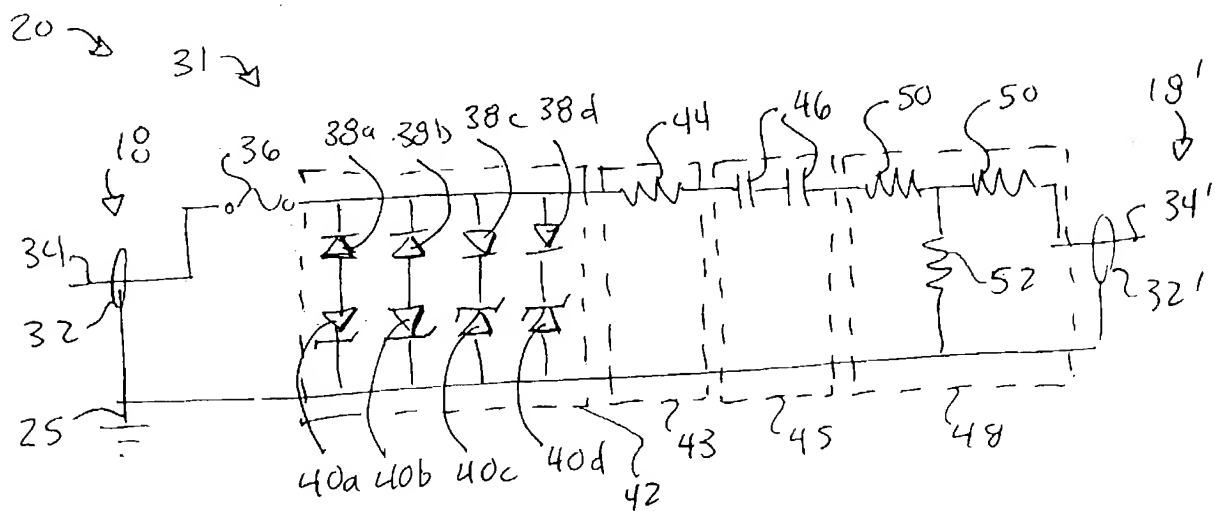 20
31
18
36
38a
38b
38c
38d
44
46
50
50
18'
34
34'
32
52
32'
25
40a
40b
40c
40d
42
43
45
48